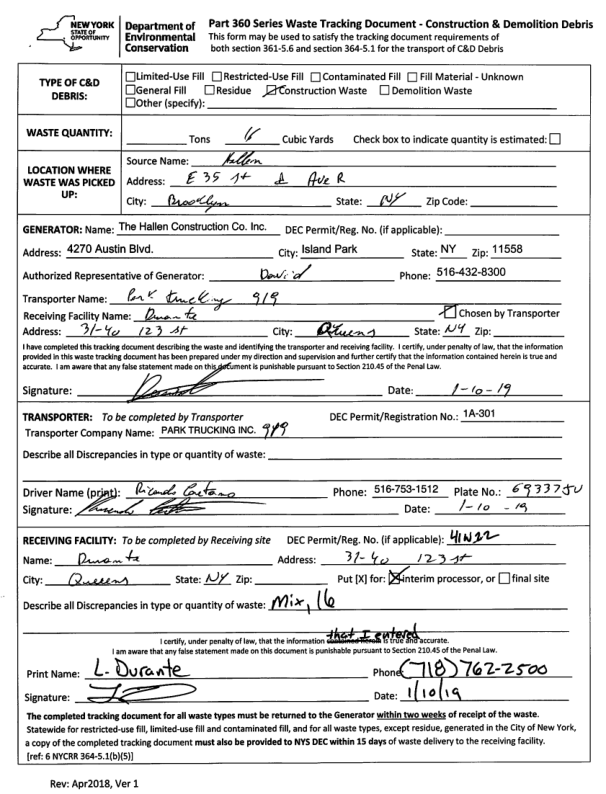 NEW YORK
STATE OF
OPPORTUNITY
Department of
Environmental
Conservation
Part 360 Series Waste Tracking Document - Construction & Demolition Debris
This form may be used to satisfy the tracking document requirements of
both section 361-5.6 and section 364-5.1 for the transport of C&D Debris
TYPE OF C&D
DEBRIS:
☐Limited-Use Fill ☐Restricted-Use Fill ☐Contaminated Fill ☐Fill Material - Unknown
☐General Fill ☐Residue ☒Construction Waste ☐Demolition Waste
☐Other (specify):
WASTE QUANTITY: Tons Cubic Yards Check box to indicate quantity is estimated: ☐
LOCATION WHERE
WASTE WAS PICKED
UP:
Source Name: Hallen
Address: E 35 st & Ave R
City: Brooklyn State: NY Zip Code:
GENERATOR: Name: The Hallen Construction Co. Inc. DEC Permit/Reg. No. (if applicable):
Address: 4270 Austin Blvd. City: Island Park State: NY Zip: 11558
Authorized Representative of Generator: David Phone: 516-432-8300
Transporter Name: Park trucking 919
Receiving Facility Name: Durante ☒Chosen by Transporter
Address: 31-40 123 st City: Queens State: NY Zip:
I have completed this tracking document describing the waste and identifying the transporter and receiving facility. I certify, under penalty of law, that the information
provided in this waste tracking document has been prepared under my direction and supervision and further certify that the information contained herein is true and
accurate. I am aware that any false statement made on this document is punishable pursuant to Section 210.45 of the Penal Law.
Signature: Date: 1-10-19
TRANSPORTER: To be completed by Transporter DEC Permit/Registration No.: 1A-301
Transporter Company Name: PARK TRUCKING INC. 919
Describe all Discrepancies in type or quantity of waste:
Driver Name (print): Ricardo Caetano Phone: 516-753-1512 Plate No.: 69337JU
Signature: Date: 1-10-19
RECEIVING FACILITY: To be completed by Receiving site DEC Permit/Reg. No. (if applicable): 41W22
Name: Durante Address: 31-40 123 st
City: Queens State: NY Zip: Put [X] for: ☒interim processor, or ☐final site
Describe all Discrepancies in type or quantity of waste: Mix, 16
that I entered
I certify, under penalty of law, that the information contained herein is true and accurate.
I am aware that any false statement made on this document is punishable pursuant to Section 210.45 of the Penal Law.
Print Name: L. Durante Phone: (718) 762-2500
Signature: Date: 1/10/19
The completed tracking document for all waste types must be returned to the Generator within two weeks of receipt of the waste.
Statewide for restricted-use fill, limited-use fill and contaminated fill, and for all waste types, except residue, generated in the City of New York,
a copy of the completed tracking document must also be provided to NYS DEC within 15 days of waste delivery to the receiving facility.
[ref: 6 NYCRR 364-5.1(b)(5)]
Rev: Apr2018, Ver 1